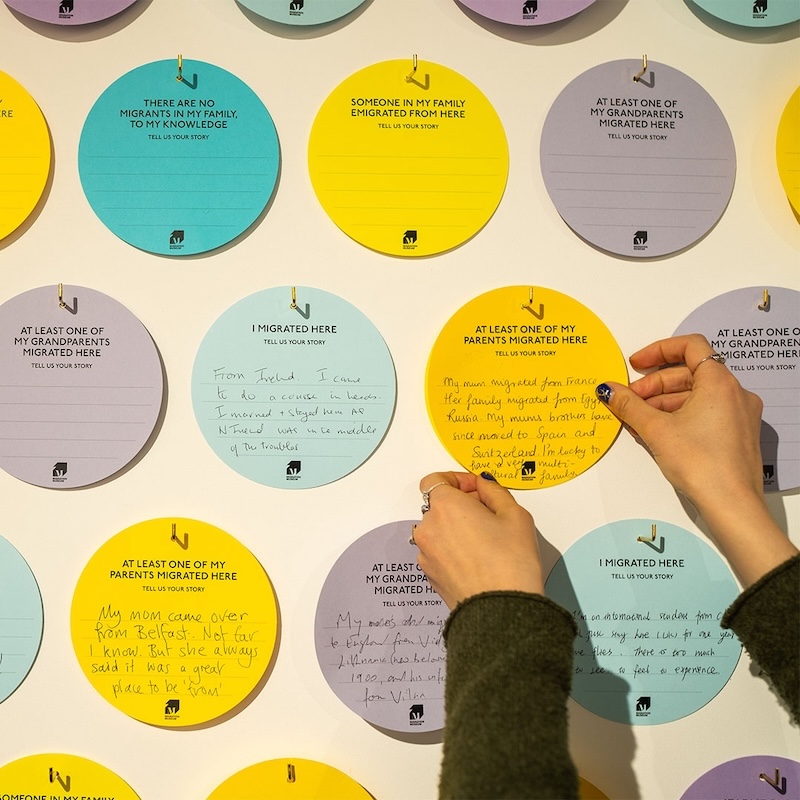 MIGRATION
MUSEUM
MIGRATION
MUSEUM
MIGRATION
MUSEUM
MIGRATION
MUSEUM
ERE
THERE ARE NO
MIGRANTS IN MY FAMILY,
TO MY KNOWLEDGE
TELL US YOUR STORY
MIGRATION
MUSEUM
SOMEONE IN MY FAMILY
EMIGRATED FROM HERE
TELL US YOUR STORY
MIGRATION
MUSEUM
AT LEAST ONE OF
MY GRANDPARENTS
MIGRATED HERE
TELL US YOUR STORY
MIGRATION
MUSEUM
AT LEAST ONE OF
MY GRANDPARENTS
MIGRATED HERE
TELL US YOUR STORY
MIGRATION
MUSEUM
I MIGRATED HERE
TELL US YOUR STORY
From Ireland I came
to do a course in
I married + stayed here as
N Ireland was in the middle
of the troubles
MIGRATION
MUSEUM
AT LEAST ONE OF MY
PARENTS MIGRATED HERE
TELL US YOUR STORY
My mum migrated from France
Her family migrated from Egypt
Russia. My mums brothers have
since moved to Spain and
Switzerland. I'm lucky to
have a very multi-
family
AT LEAST ONE OF
MY GRANDPARENTS
MIGRATED HERE
TELL US YOUR STORY
AT LEAST ONE OF MY
PARENTS MIGRATED HERE
TELL US YOUR STORY
My mom came over
from Belfast. Not far
I know. But she always
said it was a great
place to be 'from'
MIGRATION
MUSEUM
AT LEAST
MY GRANDPA
MIGRATED HE
TELL US YOUR
My
to England from
1900, and his
from
MIGRATION
MUSEUM
I MIGRATED HERE
TELL US YOUR STORY
I'm an international student from
just say here for one year
There is too much
see to feel to experience.
MIGRATION
MUSEUM
SOMEONE IN MY FAMILY